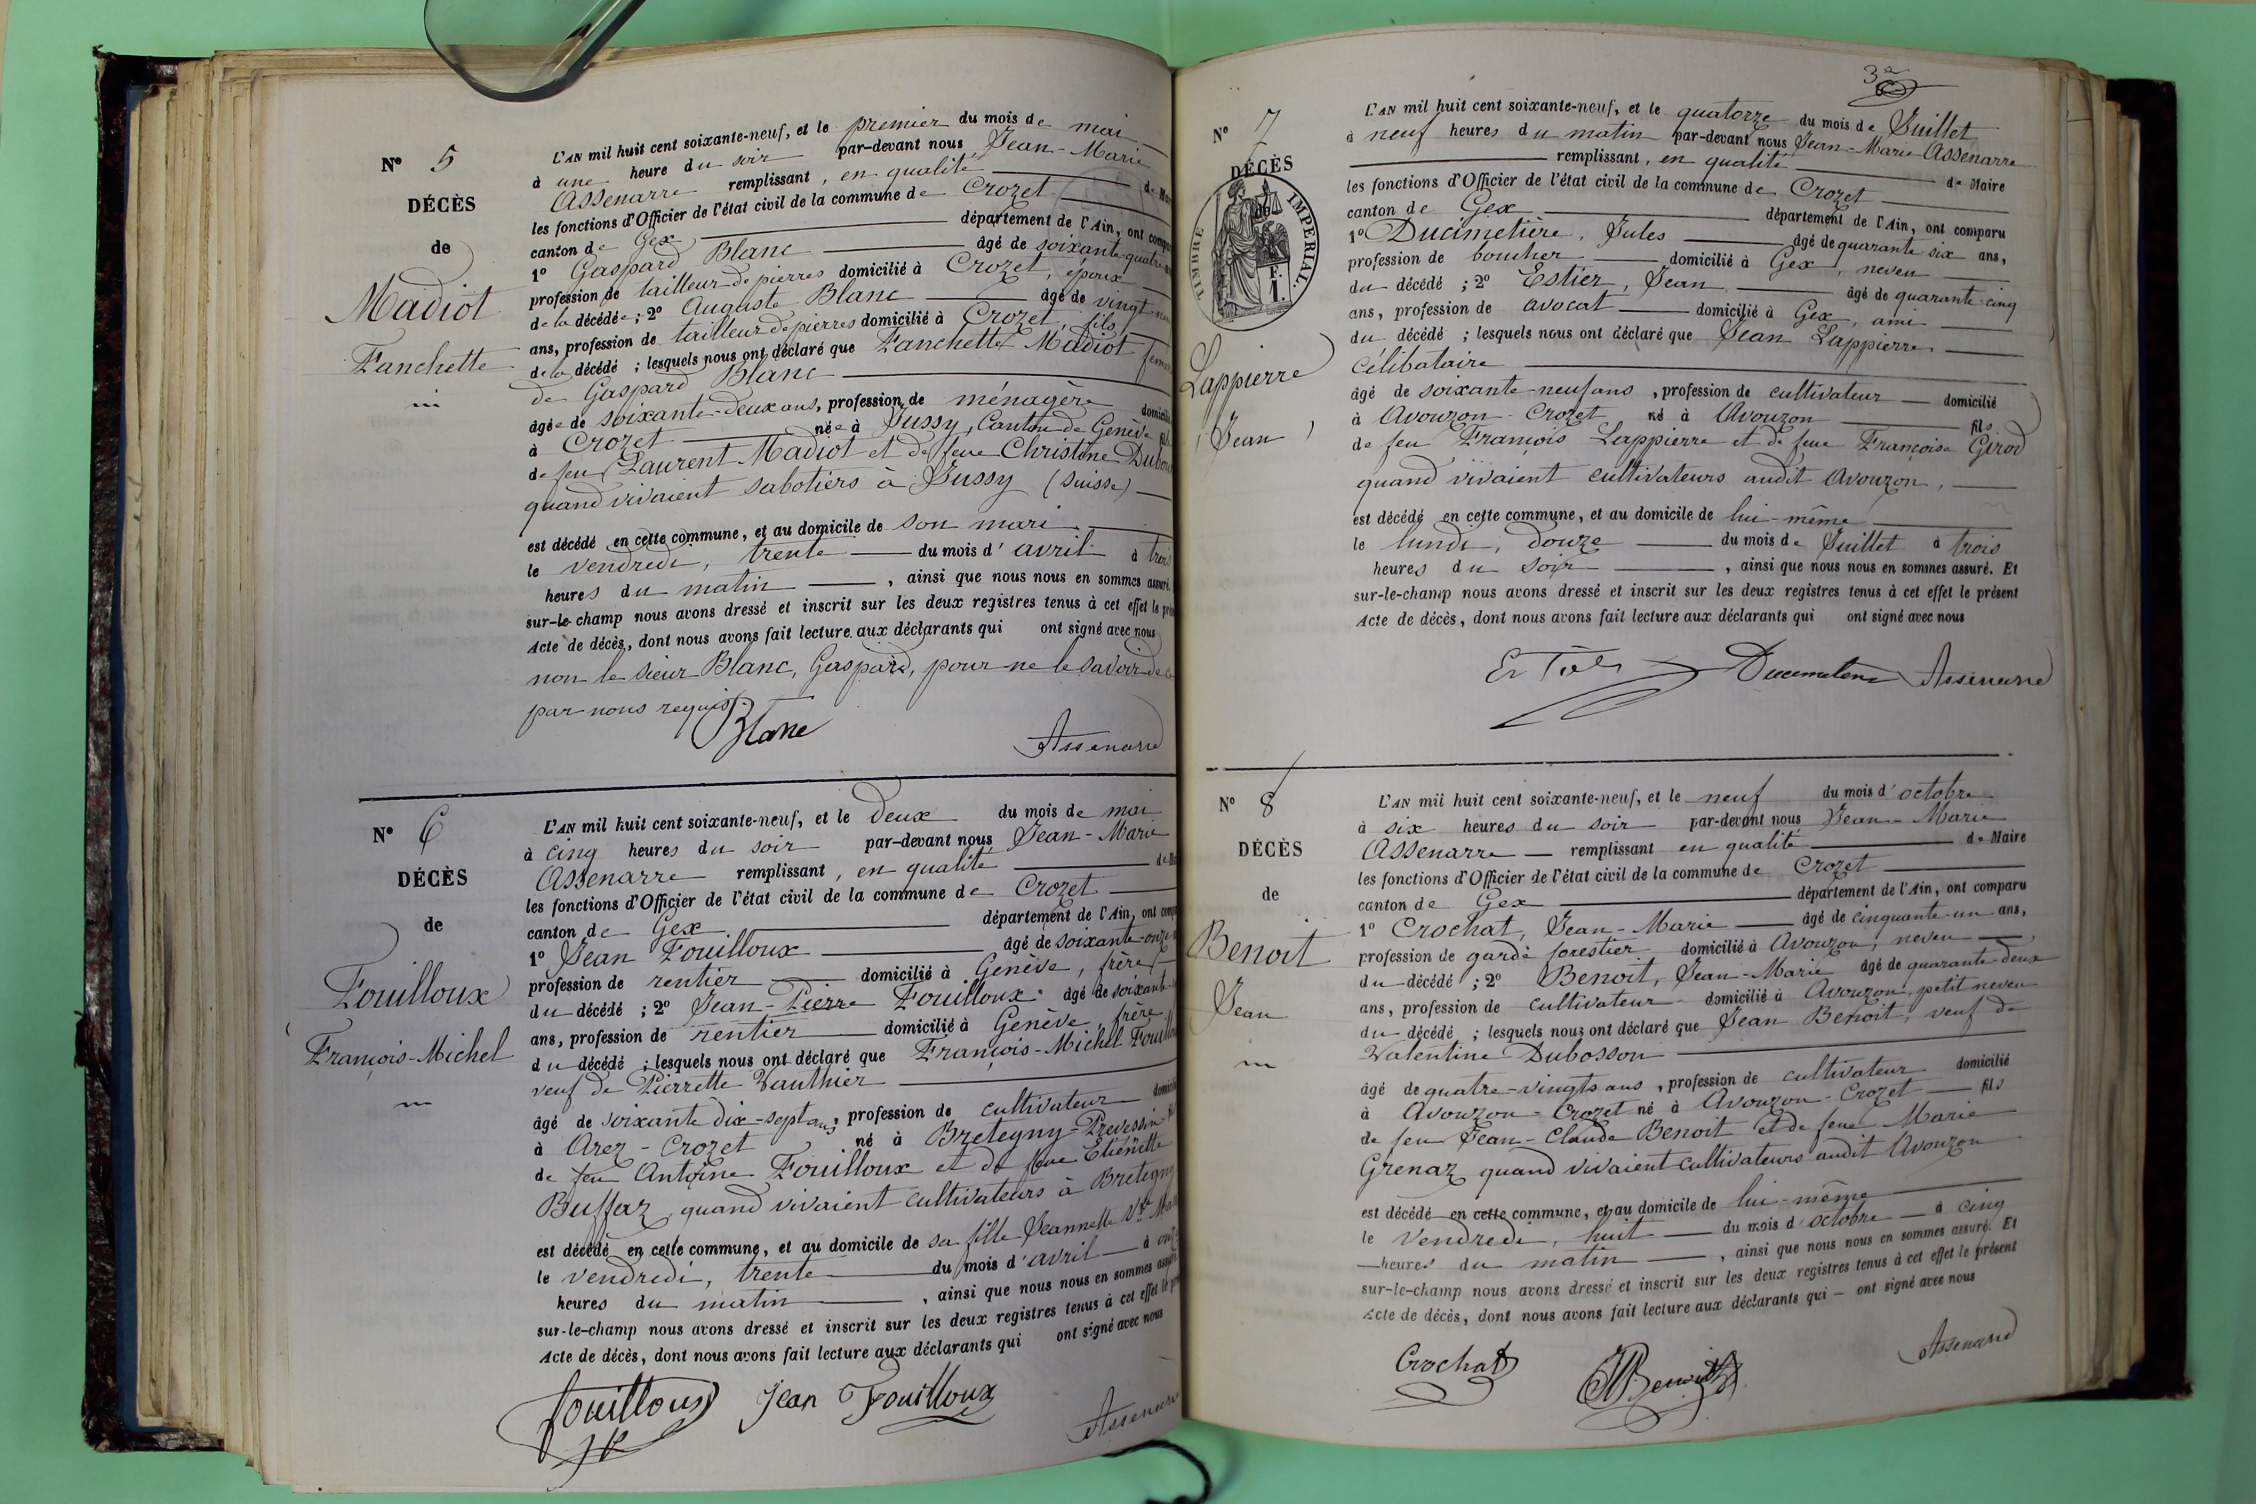 N° 5
DÉCÈS
de
Madiot
Fanchette
L'AN mil huit cent soixante-neuf, et le premier du mois de mai
à une heure du soir par-devant nous Jean-Marie
Assenarre remplissant, en qualité de
les fonctions d'Officier de l'état civil de la commune de Crozet
canton de Gex département de l'Ain, ont
1° Gaspard Blanc âgé de soixante-quatre
profession de tailleur de pierres domicilié à Crozet, époux
de la décédée; 2° Auguste Blanc âgé de vingt
ans, profession de tailleur de pierres domicilié à Crozet fils
de la décédé ; lesquels nous ont déclaré que Fanchette Madiot
de Gaspard Blanc
âgée de soixante-deux ans, profession de ménagère
à Crozet née à Jussy, Canton de Genève
de feu Laurent Madiot et de feue Christine
quand vivaient sabotiers à Jussy (Suisse)
est décédé en cette commune, et au domicile de son mari
le vendredi, trente du mois d'avril à trois
heures du matin, ainsi que nous nous en sommes assuré.
sur-le-champ nous avons dressé et inscrit sur les deux registres tenus à cet effet le
Acte de décès, dont nous avons fait lecture aux déclarants qui ont signé avec nous
non le sieur Blanc, Gaspard, pour ne le savoir de ce
par nous requis.
Blanc Assenarre
N° 6
DÉCÈS
de
Fouilloux
François-Michel
L'AN mil huit cent soixante-neuf, et le deux du mois de mai
à cinq heures du soir par-devant nous Jean-Marie
Assenarre remplissant, en qualité de
les fonctions d'Officier de l'état civil de la commune de Crozet
canton de Gex département de l'Ain, ont
1° Jean Fouilloux âgé de soixante-onze
profession de rentier domicilié à Genève, frère
du décédé ; 2° Jean-Pierre Fouilloux âgé de soixante
ans, profession de rentier domicilié à Genève frère
du décédé ; lesquels nous ont déclaré que François-Michel
veuf de Pierrette Vauthier
âgé de soixante dix-sept ans, profession de cultivateur
à Arez-Crozet né à Bretegny-Prevessin
de feu Antoine Fouilloux et de feue Etiennette
Buffaz quand vivaient cultivateurs à
est décédé en cette commune, et au domicile de sa fille Jeannette Vve
le vendredi, trente du mois d'avril à
heures du matin, ainsi que nous nous en sommes
sur-le-champ nous avons dressé et inscrit sur les deux registres tenus à cet effet le
Acte de décès, dont nous avons fait lecture aux déclarants qui ont signé avec nous
Fouilloux Jean Fouilloux Assenarre
3e
N° 7
DÉCÈS
de
TIMBRE IMPÉRIAL.
F.
1.
Lappierre
Jean
L'AN mil huit cent soixante-neuf, et le quatorze du mois de Juillet
à neuf heures du matin par-devant nous Jean-Marie Assenarre
remplissant, en qualité de Maire
les fonctions d'Officier de l'état civil de la commune de Crozet
canton de Gex département de l'Ain, ont comparu
1° Ducimetière, Jules âgé de quarante six ans,
profession de boucher domicilié à Gex, neveu
du décédé ; 2° Estier, Jean âgé de quarante cinq
ans, profession de avocat domicilié à Gex, ami
du décédé ; lesquels nous ont déclaré que Jean Lappierre
célibataire
âgé de soixante-neuf ans, profession de cultivateur domicilié
à Avouzon-Crozet né à Avouzon fils
de feu François Lappierre et de feue Françoise Girod
quand vivaient cultivateurs audit Avouzon,
est décédé en cette commune, et au domicile de lui-même
le lundi, douze du mois de Juillet à trois
heures du soir, ainsi que nous nous en sommes assuré. Et
sur-le-champ nous avons dressé et inscrit sur les deux registres tenus à cet effet le présent
Acte de décès, dont nous avons fait lecture aux déclarants qui ont signé avec nous
Estier Ducimetière Assenarre
N° 8
DÉCÈS
de
Benoit
Jean
L'AN mil huit cent soixante-neuf, et le neuf du mois d'octobre
à six heures du soir par-devant nous Jean-Marie
Assenarre remplissant en qualité de Maire
les fonctions d'Officier de l'état civil de la commune de Crozet
canton de Gex département de l'Ain, ont comparu
1° Crochat, Jean-Marie âgé de cinquante-un ans,
profession de garde forestier domicilié à Avouzon, neveu
du décédé ; 2° Benoit, Jean-Marie âgé de quarante-deux
ans, profession de cultivateur domicilié à Avouzon, petit neveu
du décédé ; lesquels nous ont déclaré que Jean Benoit, veuf de
Valentine Dubosson
âgé de quatre-vingts ans, profession de cultivateur domicilié
à Avouzon-Crozet né à Avouzon-Crozet fils
de feu Jean-Claude Benoit et de feue Marie
Grenaz quand vivaient cultivateurs audit Avouzon
est décédé en cette commune, et au domicile de lui-même
le Vendredi, huit du mois d'octobre à cinq
heures du matin, ainsi que nous nous en sommes assuré. Et
sur-le-champ nous avons dressé et inscrit sur les deux registres tenus à cet effet le présent
Acte de décès, dont nous avons fait lecture aux déclarants qui ont signé avec nous
Crochat JMBenoit Assenarre